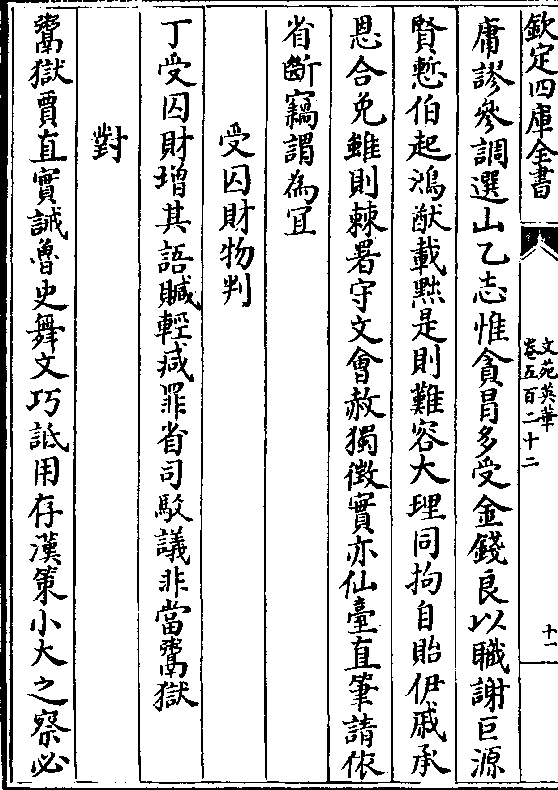 欽定四庫全書
文苑英華
卷五百二十二
十一
庸謬參調選山乙志惟貪冒多受金錢良以職謝巨源
賢慙伯起鴻猷載㸃是則難容大理同拘自貽伊戚承
恩合免雖則棘署守文會赦獨徵實亦仙臺直筆請依
省斷竊謂為宜
受囚財物判
丁受囚財增其語贓輕減罪省司駁議非當鬻獄
對
鬻獄賈直實誡魯史舞文巧詆用存漢策小大之察必